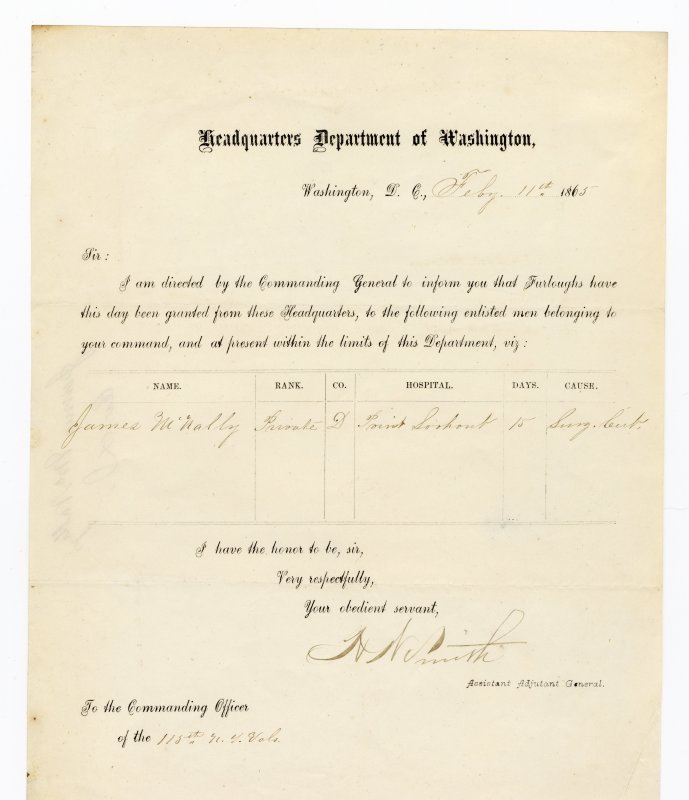 Headquarters Department of Washington,
Washington, D. C., Feby. 11th 1865
Sir:
I am directed by the Commanding General to inform you that Furloughs have
this day been granted from these Headquarters, to the following enlisted men belonging to
your command, and at present within the limits of this Department, viz:
NAME. RANK. CO. HOSPITAL. DAYS. CAUSE.
James McNally Private D Point Lookout 15 Surg. Cert.
I have the honor to be, sir,
Very respectfully,
Your obedient servant,
H N Smith
Assistant Adjutant General.
To the Commanding Officer
of the 115th N. Y. Vols.